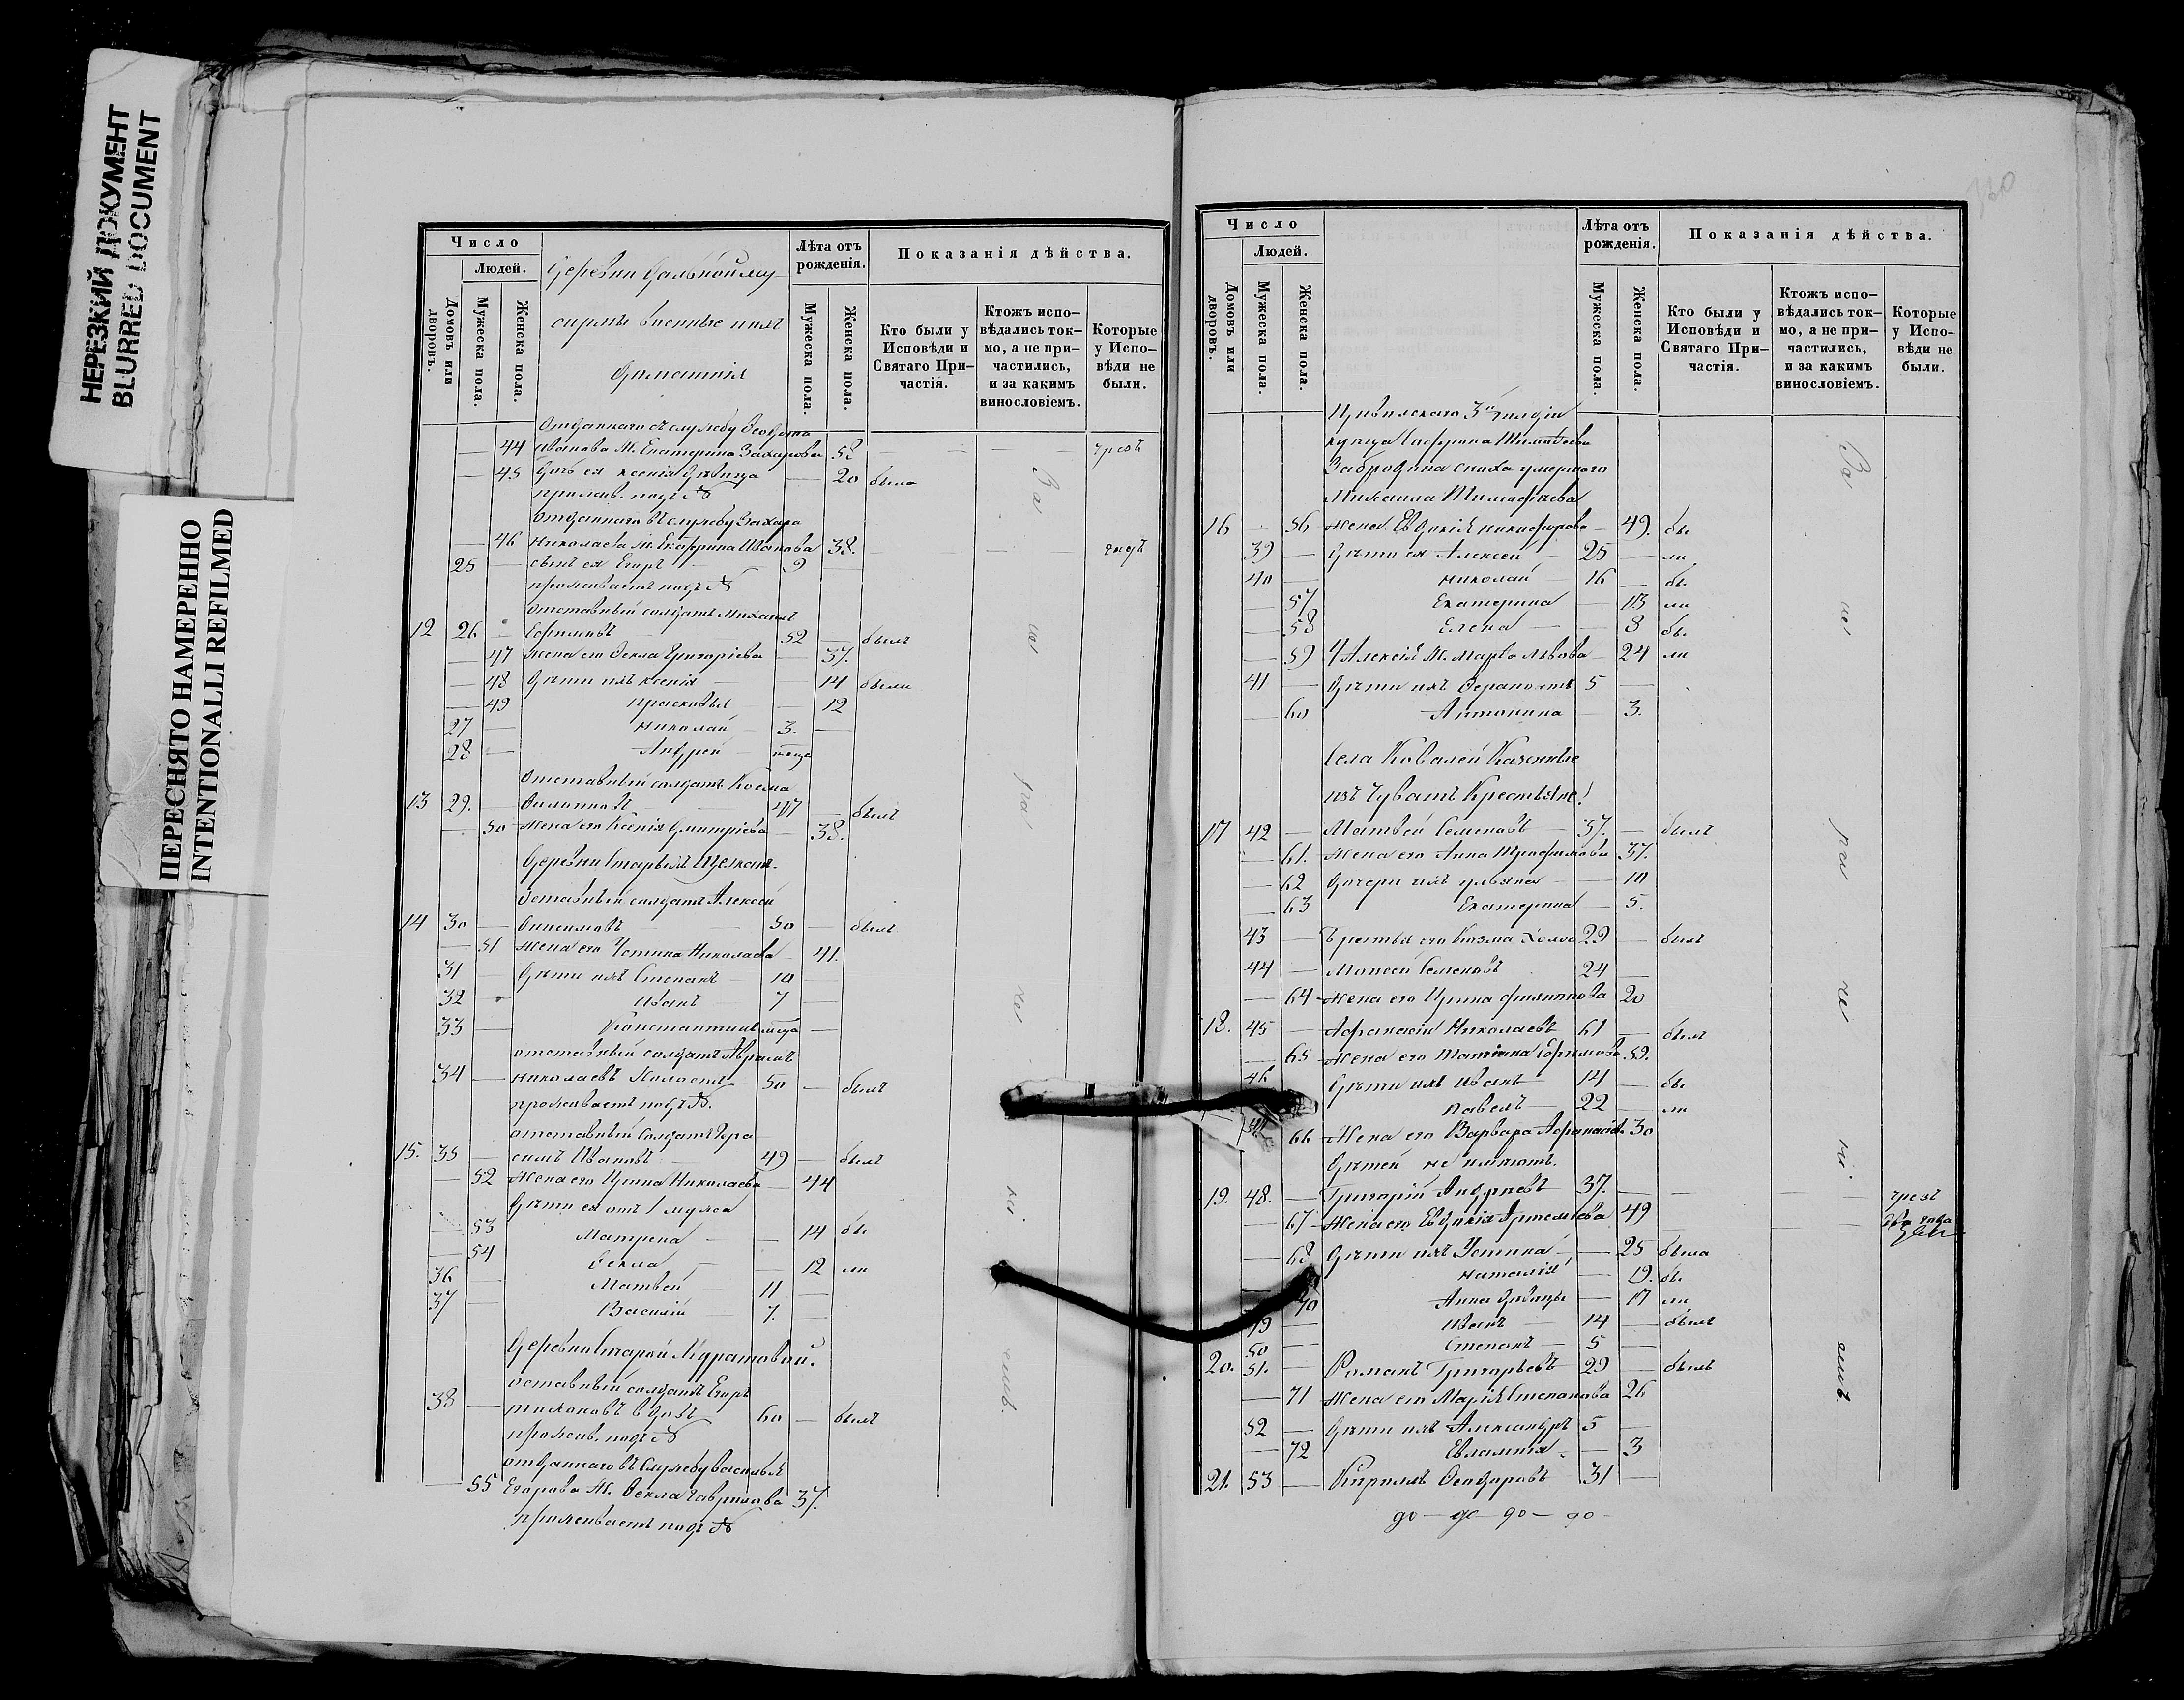 НЕРЕЗКИЙ ДОКУМЕНТ
BLURRED DOCUMENT
ПЕРЕСНЯТО НАМЕРЕННО
INTENTIONALLI REFILMED
Число
Людей.
Домовъ или дворовъ.
Мужеска пола.
Женска пола.
Деревни
военные ихъ
Домашнія
Лѣта отъ рожденія.
Мужеска пола.
Женска пола.
Показанія дѣйства.
Кто были у Исповѣди и Святаго Причастія.
Ктожъ исповѣдались токмо, а не причастились, и за какимъ винословіемъ.
Которые у Исповѣди не были.
Отданнаго въ службу Ѳеодота
— 44 Иванова Ж. Екатерина Захарова 58 — — —
— 45 Дочь ея Ксенія Дѣвица — 20 была
прожив. подъ №
Отданнаго въ службу Захара
— 46 Николаева Ж. Екатерина Иванова 38. — —
25 — сынъ ея Егоръ — 9
проживаетъ подъ №
Отставный солдатъ Михаилъ
12 26 — Ефимовъ 52 — былъ
— 47 Жена его Ѳекла Григоріева — 37.
— 48 Дѣти ихъ Ксенія — 14 были
— 49 Прасковья — 12
27 — Николай 3. —
28 — Андрей
Отставный солдатъ Косма
13 29. — Филиповъ 47 — былъ
— 50 Жена его Ксенія Дмитріева — 38.
Деревни Старыхъ
Оставный солдатъ Алексей
14 30 — Онисимовъ 50 — былъ
— 51 Жена его Устина Николаева — 41.
31 — Дѣти ихъ Степанъ — 10 —
32 — Иванъ — 7 —
33 — Константинъ —
отставный солдатъ Авраамъ
34 — Николаевъ Холостъ 50 — былъ
проживаетъ подъ №.
отставный солдатъ Гера
15. 35 — симъ Ивановъ 49 — былъ
— 52 Жена его Ирина Николаева — 44
Дѣти ея отъ 1 мужа
— 53 Матрена — 14 бы
— 54 Ѳекла — 12 ли
36 — Матвей 11 —
37 — Василій — 7. —
Деревни Старой Муратовой.
Оставный солдатъ Егоръ
38 — Тихоновъ вдовъ 60 — былъ
прожив. подъ №
отданнаго въ службу Василья
— 55 Егорова Ж. Ѳекла Гаврилова 37.
проживаетъ подъ №
360
Число
Людей.
Домовъ или дворовъ.
Мужеска пола.
Женска пола.
Лѣта отъ рожденія.
Мужеска пола.
Женска пола.
Показанія дѣйства.
Кто были у Исповѣди и Святаго Причастія.
Ктожъ исповѣдались токмо, а не причастились, и за какимъ винословіемъ.
Которые у Исповѣди не были.
Цивильскаго 3й гильдіи
купца Тимофеева
Забродина сноха умершаго
Михаила Тимофѣева
16 — 56 Жена Евдокія Никифорова — 49. бы
39 — Дѣти ея Алексей — 25 — ли
40 — Николай — 16 — бы
— 57 Екатерина — 13 ли
— 58 Елена — 8 бы
— 59 У Алексія Ж. Марѳа Львова — 24 ли
41 — Дѣти ихъ Ѳерапонтъ 5 —
— 60 Антонина — 3.
Села Ковалей Казенные
изъ Чувашъ Крестьяне.
17 42 — Матвей Семеновъ — 37. — былъ
— 61. Жена его Анна Трофимова 37.
— 62 Дочери ихъ Ульяна — — 10
— 63 Екатерина — 5.
43 — Братья его Козма Холос 29 — былъ
44 — Моисей Семеновъ 24 —
— 64 Жена его Ирина Филипова 20
18. 45 — Афанасій Николаевъ 61 — былъ
— 65 Жена его Татіана Ефимова 59.
46 Дѣти ихъ Иванъ — 14 — бы
Павелъ — 22 — ли
66 Жена его Варвара Афанасіев. 30
Дѣтей не имѣютъ.
19. 48. — Григорій Андреевъ 37. — — —
— 67 Жена его Евдокія Артеміева 49 — —
— 68 Дѣти ихъ Устина — — 25 была
Наталія — 19. бы
70 Анна Дѣвицы — 17 ли
49 — Иванъ — 14 — былъ
50 — Степанъ — 5 —
20. 51. — Романъ Григорьевъ 29 — былъ
— 71 Жена его Марія Степанова 26
52 — Дѣти ихъ Александръ 5 —
— 72 Евлампія — 3
21. 53 — Кирилъ Ѳеодоровъ 31 —